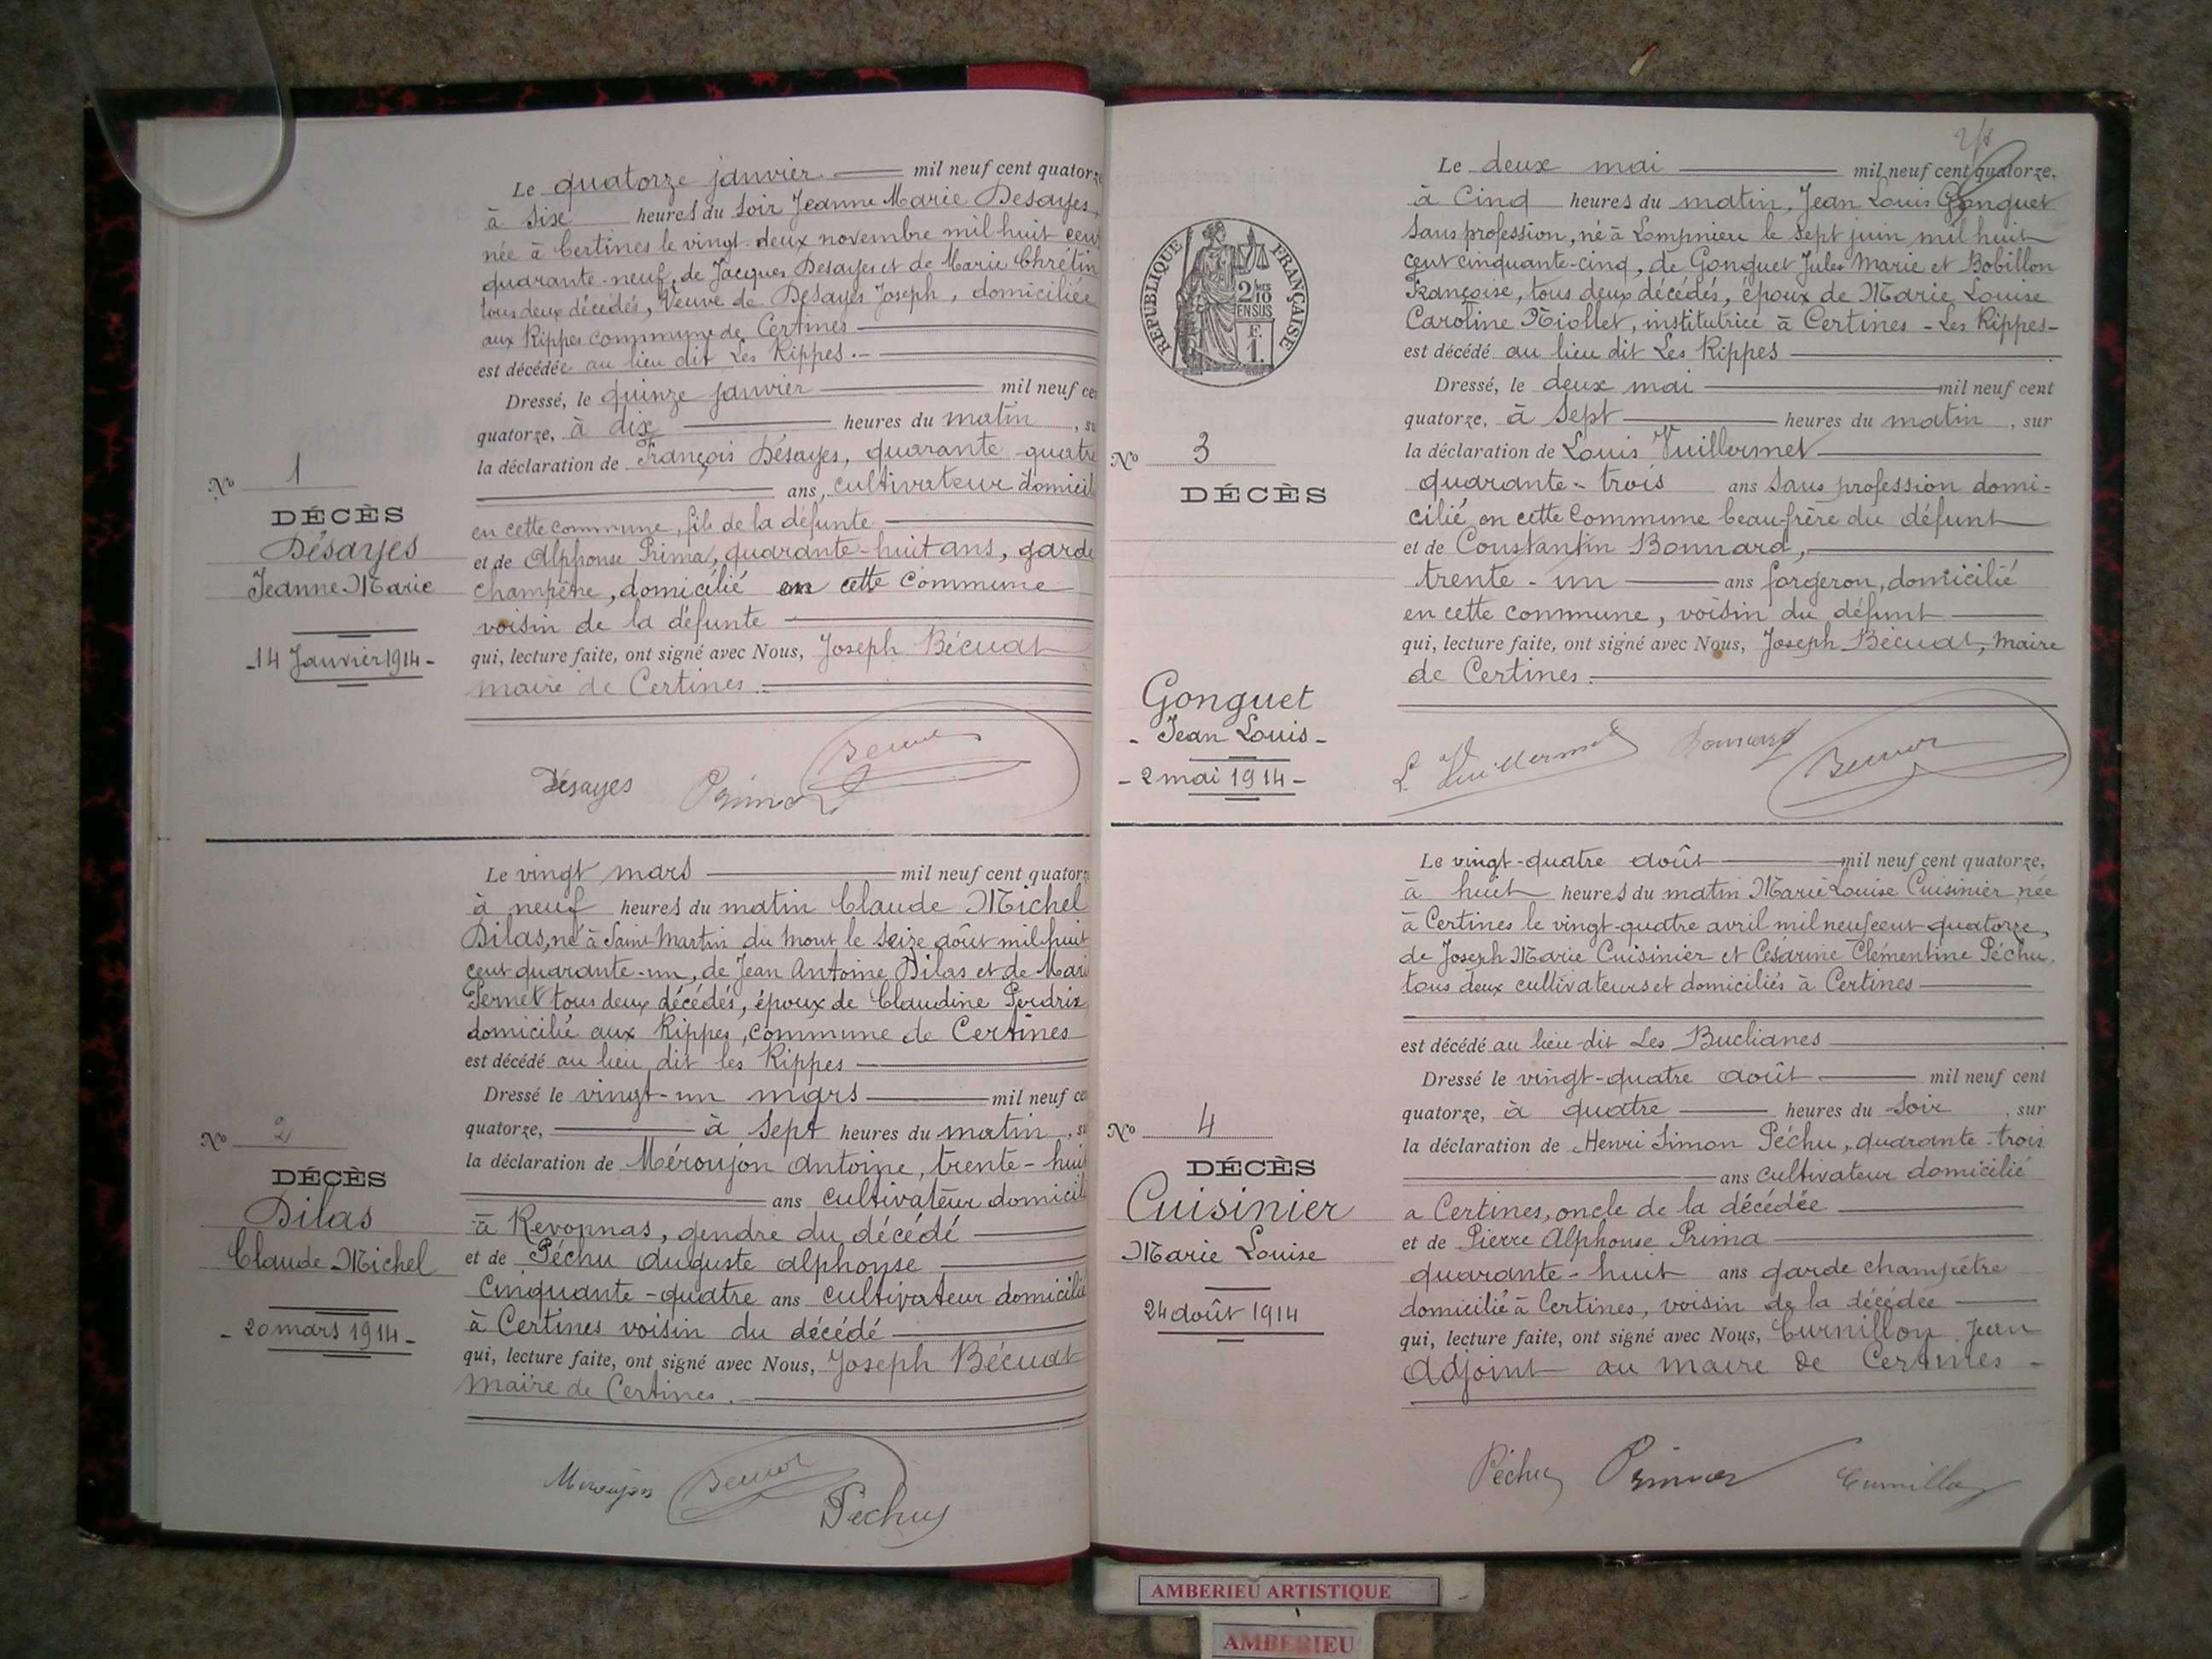 Le quatorze janvier mil neuf cent quatorze
à six heures du soir Jeanne Marie Desayes,
née à Certines le vingt-deux novembre mil huit cent
quarante-neuf, de Jacques Desayes et de Marie Chrétin
tous deux décédés, Veuve de Désayes Joseph, domiciliée
aux Rippes commune de Certines
est décédée au lieu dit Les Rippes.
Dressé, le quinze janvier mil neuf ce
quatorze, à dix heures du matin, su
la déclaration de François Désayes, quarante-quatre
ans, cultivateur domicil
en cette commune, fils de la défunte
et de Alphonse Prima, quarante-huit ans, garde
champêtre, domicilié en cette commune
voisin de la défunte
qui, lecture faite, ont signé avec Nous, Joseph Bécuat
maire de Certines.
No 1
DÉCÈS
Désayes
Jeanne Marie
-14 Janvier 1914-
Désayes Prima
Le vingt mars mil neuf cent quatorz
à neuf heures du matin Claude Michel
Dilas, né à Saint Martin du Mont le seize août mil huit
cent quarante-un, de Jean Antoine Dilas et de Mari
Pernet tous deux décédés, époux de Claudine Perdrix
domicilié aux Rippes, commune de Certines
est décédé au lieu dit les Rippes
Dressé le vingt-un mars mil neuf ce
quatorze, à sept heures du matin, su
la déclaration de Méroujon Antoine, trente-huit
ans cultivateur domicil
à Revonnas, gendre du décédé
et de Péchu Auguste Alphonse
cinquante-quatre ans cultivateur domicilié
à Certines voisin du décédé
qui, lecture faite, ont signé avec Nous, Joseph Bécuat
Maire de Certines.
No 2
DÉCÈS
Dilas
Claude Michel
- 20 mars 1914 -
Méroujon Pechu
Le deux mai mil neuf cent quatorze,
à cinq heures du matin, Jean Louis Gonguet
sans profession, né à Lompnieu le sept juin mil huit
cent cinquante-cinq, de Gonguet Jules Marie et Bobillon
Françoise, tous deux décédés, époux de Marie Louise
Caroline Niollet, institutrice à Certines - Les Rippes-
est décédé au lieu dit Les Rippes
RÉPUBLIQUE FRANÇAISE
2/10
EN SUS
F.
1.
Dressé, le deux mai mil neuf cent
quatorze, à sept heures du matin, sur
la déclaration de Louis Vuillermet
quarante-trois ans sans profession domi-
cilié en cette commune beau-frère du défunt
et de Constantin Bonnard,
trente-un ans forgeron, domicilié
en cette commune, voisin du défunt
qui, lecture faite, ont signé avec Nous, Joseph Bécuat, Maire
de Certines.
No 3
DÉCÈS
Gonguet
- Jean Louis -
- 2 mai 1914 -
L. Vuillermet Bonnard
Le vingt-quatre août mil neuf cent quatorze,
à huit heures du matin Marie Louise Cuisinier née
à Certines le vingt-quatre avril mil neuf cent quatorze,
de Joseph Marie Cuisinier et Césarine Clémentine Péchu,
tous deux cultivateurs et domiciliés à Certines
est décédé au lieu dit Les Buclianes
Dressé le vingt-quatre août mil neuf cent
quatorze, à quatre heures du soir, sur
la déclaration de Henri Simon Péchu, quarante-trois
ans cultivateur domicilié
a Certines, oncle de la décédée
et de Pierre Alphonse Prima
quarante-huit ans garde champêtre
domicilié à Certines, voisin de la décédée
qui, lecture faite, ont signé avec Nous, Curnillon Jean
adjoint au maire de Certines -
No 4
DÉCÈS
Cuisinier
Marie Louise
24 août 1914
Péchu Prima Curnillon
AMBERIEU ARTISTIQUE
AMBERIEU